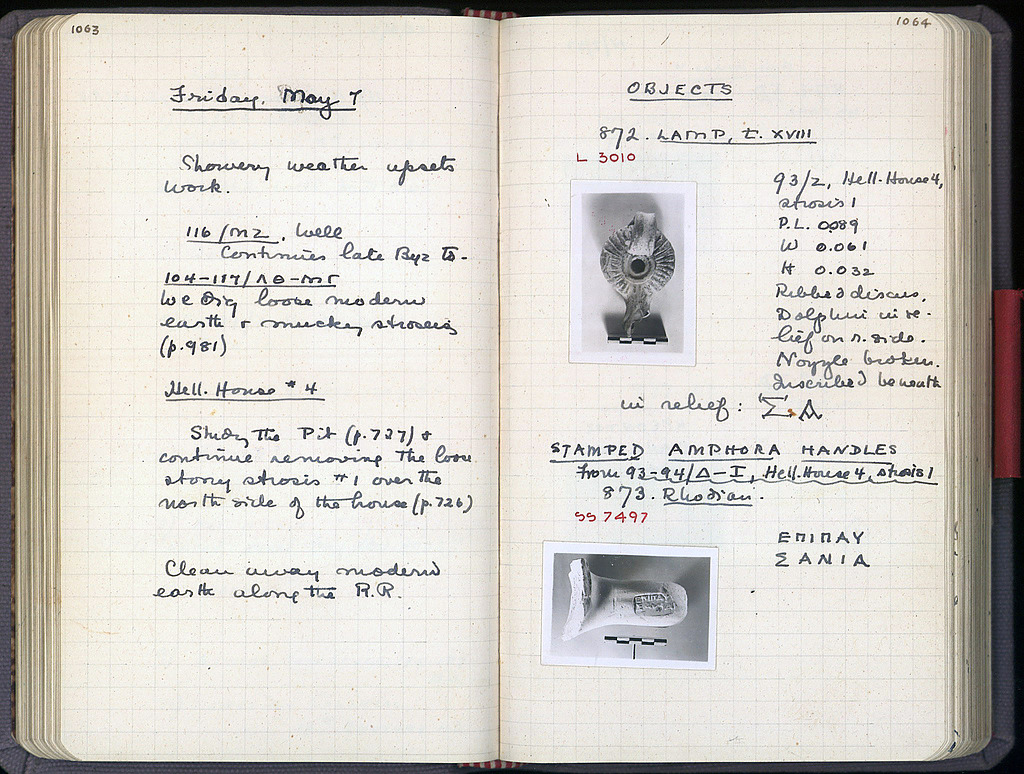 1063
Friday, May 7
Showery weather upsets
work.
116/ΜΖ, Well
Continues late Byz to-
104-117/ΛΘ-ΜΓ
We dig loose modern
earth & mucky stroseis
(p.981)
Hell. House #4
Study the Pit (p.727) &
continue removing the loose
stony strosis #1 over the
north side of the house (p.726)
Clean away modern
earth along the R.R.
1064
OBJECTS
872. LAMP, t. XVIII
L 3010
93/Ζ, Hell. House 4,
strosis 1
P.L. 0.089
W 0.061
H 0.032
Ribbed discus,
Dolphin in re-
lief on r. side.
Nozzle broken.
Inscribed beneath
in relief: Σ. Δ
STAMPED AMPHORA HANDLES
from 93-94/Δ-Ι, Hell. House 4, strosis 1
873. Rhodian.
SS 7497
ΕΠΙΠΑΥ
ΣΑΝΙΑ